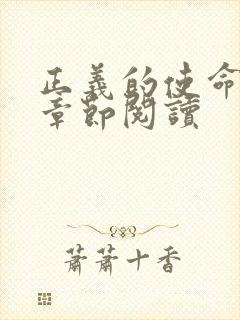 正義的使命
章節閱讀
蕭蕭十香